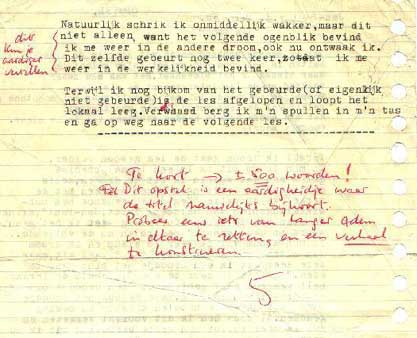 Natuurlijk schrik ik onmiddellijk wakker,maar dit
niet alleen, want het volgende ogenblik bevind
ik me weer in de andere droom,ook nu ontwaak ik.
Dit zelfde gebeurt nog twee keer,zodat ik me
weer in de werkelijkheid bevind.
dit
kun je
aardiger
vertellen
Terwijl ik nog bijkom van het gebeurde(of eigenlijk
niet gebeurde)is de les afgelopen en loopt het
lokaal leeg.Verwaasd berg ik m'n spullen in m'n tas
en ga op weg naar de volgende les.
Te kort → ± 500 woorden!
Dit opstel is een aardigheidje waar
de titel nauwelijks bij hoort.
Probeer eens iets van langer adem
in elkaar te zetten en een verhaal
te construeren.
5